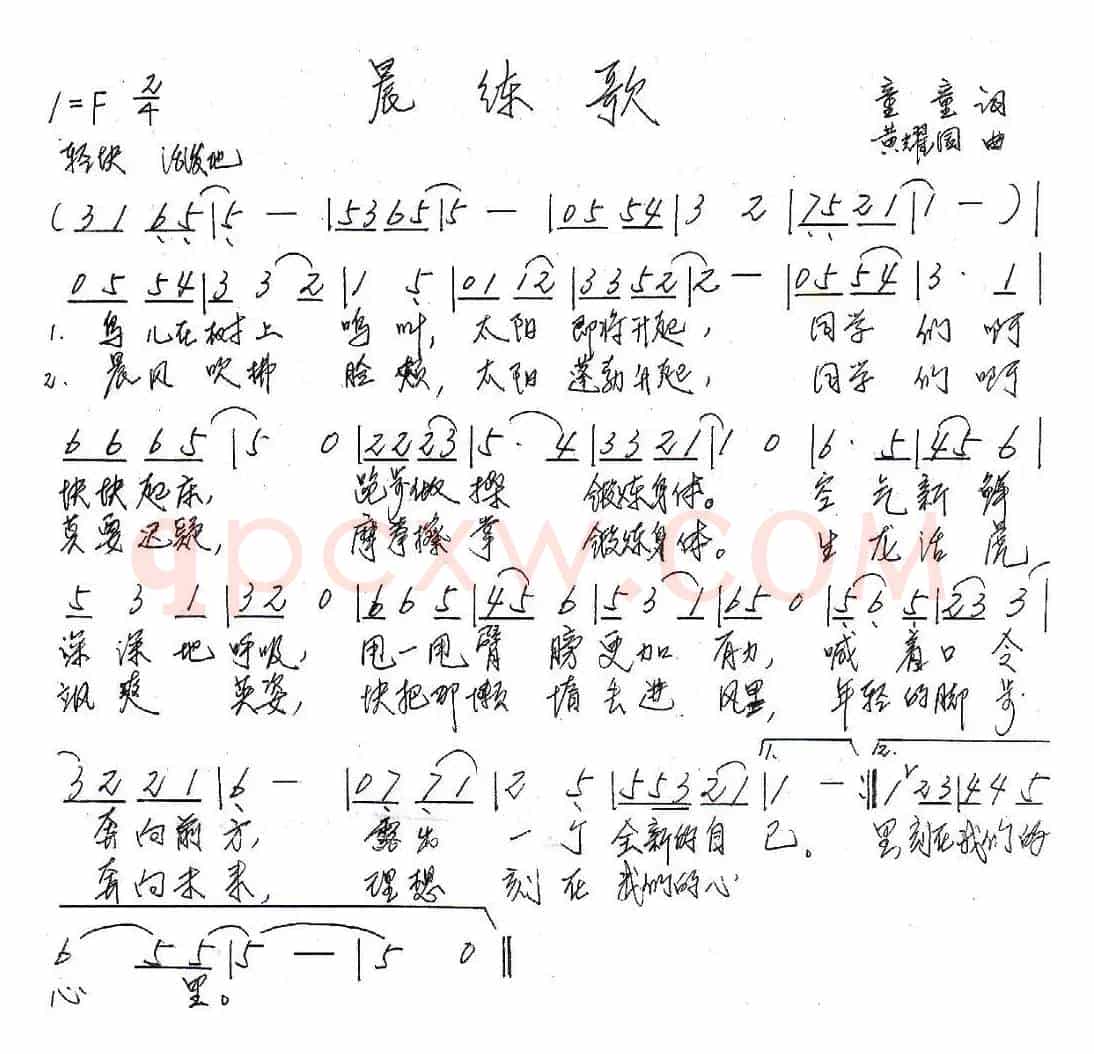 晨练歌
1=F 2/4
童童词
黄耀国曲
轻快 活泼地
(3 1 6 5|5 —|5 3 6 5|5 —|0 5 5 4|3 2|7 5 2 1|1 —)|
0 5 5 4|3 3 2|1 5|0 1 1 2|3 3 5 2|2 —|0 5 5 4|3· 1|
1. 鸟儿在树上 鸣叫, 太阳 即将升起, 同学们啊
2. 晨风吹拂 脸颊, 太阳 蓬勃升起, 同学们啊
6 6 6 5|5 0|2 2 2 3|5· 4|3 3 2 1|1 0|6· 5|4 5 6|
快快起床, 跑步做操 锻炼身体。 空气新鲜
莫要迟疑, 摩拳擦掌 锻炼身体。 生龙活虎
qpcxw.COM
5 3 1|3 2 0|6 6 5|4 5 6|5 3 1|6 5 0|5 6 5|2 3 3|
深深地呼吸, 甩一甩臂膀更加有力, 喊着口令
飒爽英姿, 快把那懒惰丢进风里, 年轻的脚步
1. 2.
3 2 2 1|6 —|0 7 7 1|2 5|5 5 3 2 1|1 —:‖1 2 3|4 4 5
奔向前方, 露出一个全新的自己。 里刻在我们的
奔向未来, 理想刻在我们的心
6 5 5|5 —|5 0‖
心里。